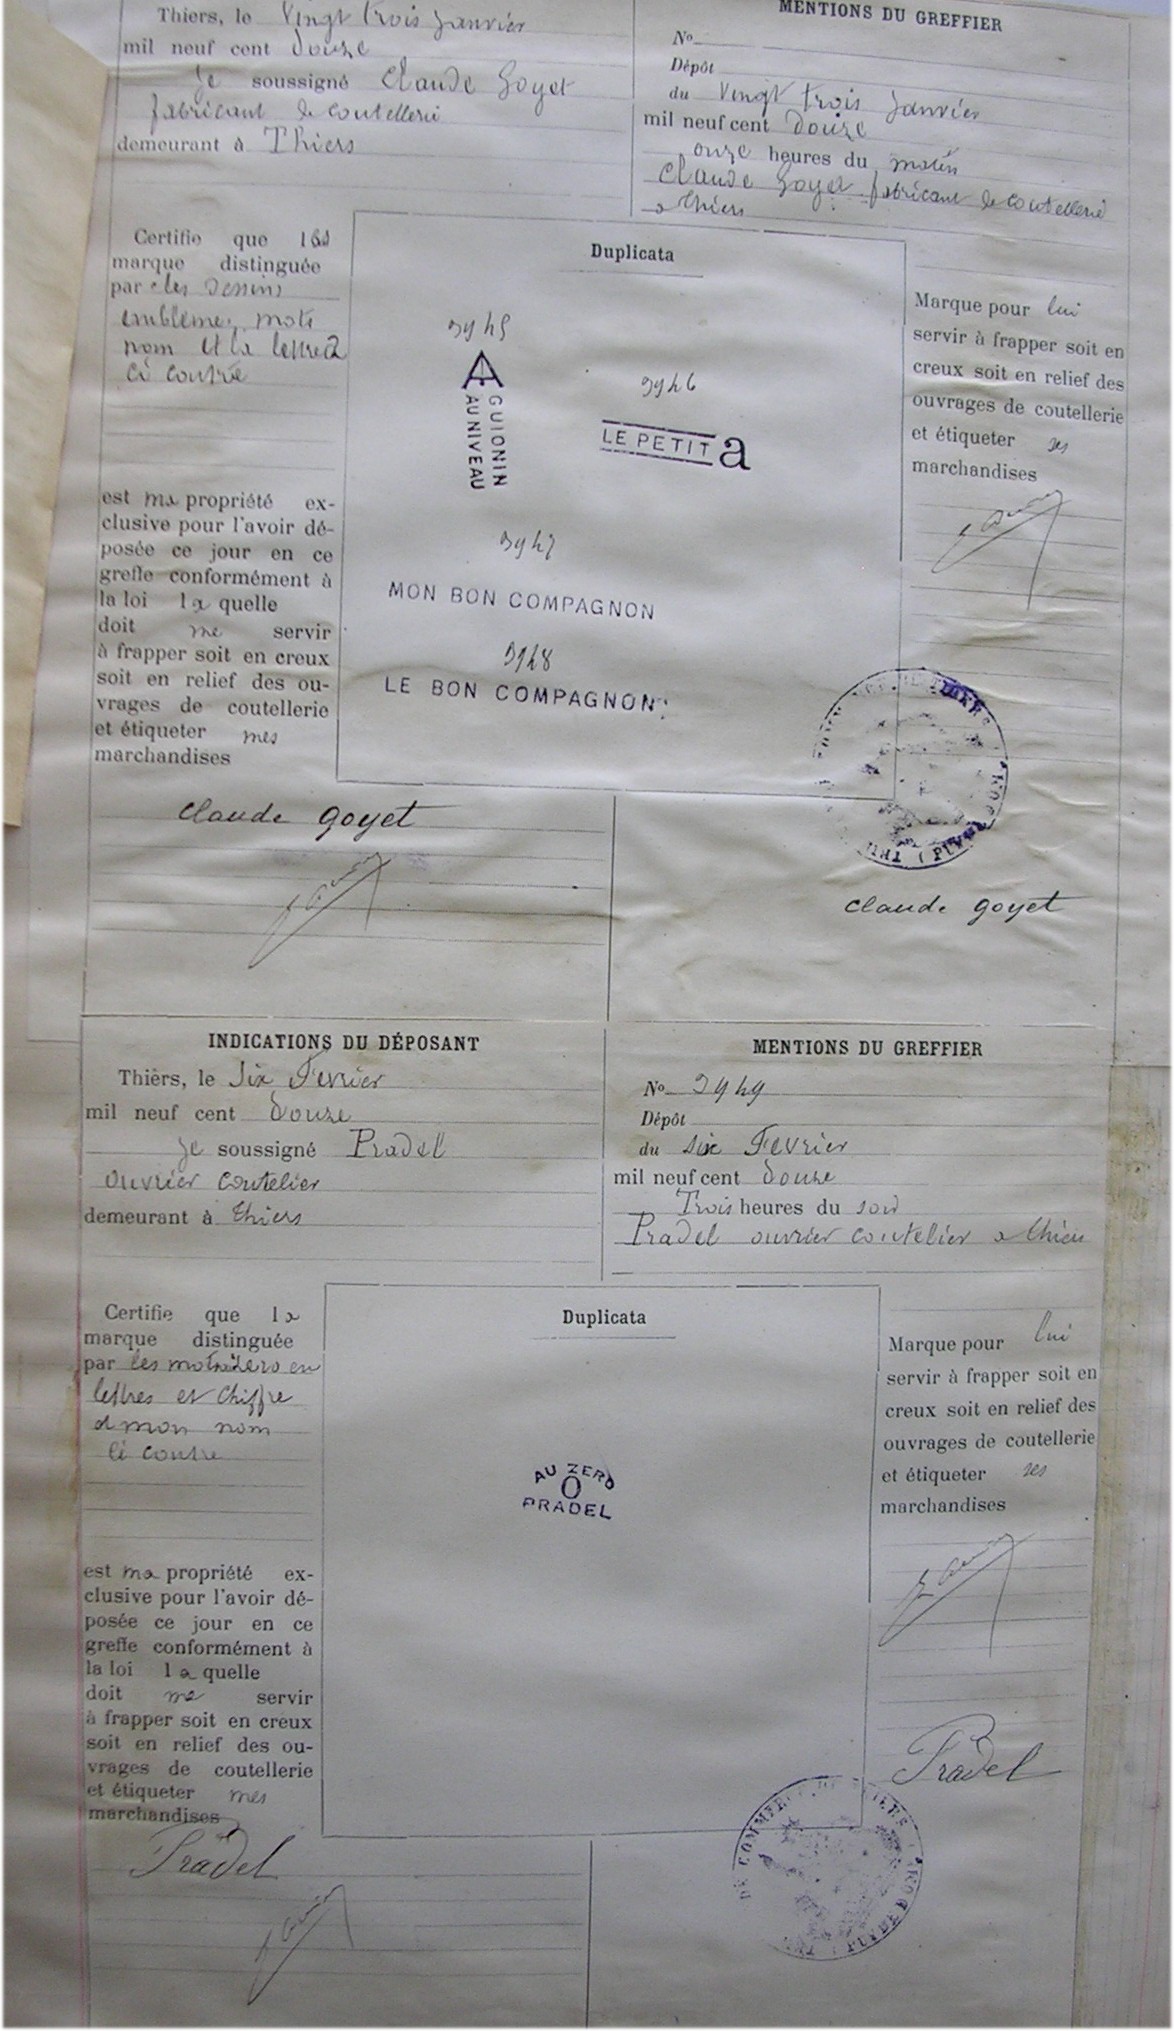 Thiers, le Vingt trois Janvier
mil neuf cent douze
Je soussigné Claude Goyet
fabricant de coutellerie
demeurant à Thiers
MENTIONS DU GREFFIER
No
Dépôt
du Vingt trois Janvier
mil neuf cent douze
onze heures du matin
Claude Goyet fabricant de coutellerie
a Thiers
Certifie que les
marque distinguée
par les dessins
emblemes, mots
nom et la lettre a
ci contre
est ma propriété ex-
clusive pour l'avoir dé-
posée ce jour en ce
greffe conformément à
la loi la quelle
doit me servir
à frapper soit en creux
soit en relief des ou-
vrages de coutellerie
et étiqueter mes
marchandises
Duplicata
3945
A
GUIONIN
AU NIVEAU
3946
LE PETIT a
3947
MON BON COMPAGNON
3948
LE BON COMPAGNON
Marque pour lui
servir à frapper soit en
creux soit en relief des
ouvrages de coutellerie
et étiqueter ses
marchandises
Claude Goyet
Claude Goyet
INDICATIONS DU DÉPOSANT
Thiers, le Six Fevrier
mil neuf cent douze
Je soussigné Pradel
ouvrier coutelier
demeurant à Thiers
MENTIONS DU GREFFIER
No 3949
Dépôt
du six Fevrier
mil neuf cent douze
Trois heures du soir
Pradel ouvrier coutelier a Thiers
Certifie que la
marque distinguée
par les mots zero en
lettres et chiffre
et mon nom
ci contre
est ma propriété ex-
clusive pour l'avoir dé-
posée ce jour en ce
greffe conformément à
la loi la quelle
doit me servir
à frapper soit en creux
soit en relief des ou-
vrages de coutellerie
et étiqueter mes
marchandises
Duplicata
AU ZERO
0
PRADEL
Marque pour lui
servir à frapper soit en
creux soit en relief des
ouvrages de coutellerie
et étiqueter ses
marchandises
Pradel
Pradel
DE COMMERCE DE THIERS